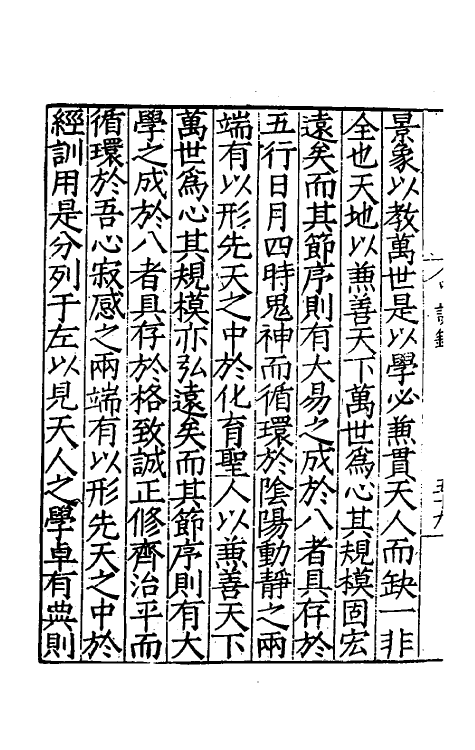 景象以教萬世是以學必兼貫天人而缺一非
全也天地以兼善天下萬世爲心其規模固宏
遠矣而其節序則有大易之成於八者具存於
五行日月四時鬼神而循環於陰陽動靜之兩
端有以形先天之中於化育聖人以兼善天下
萬世爲心其規模亦弘遠矣而其節序則有大
學之成於八者具存於格致誠正修齊治平而
循環於吾心寂感之兩端有以形先天之中於
經訓用是分列于左以見天人之學卓有典則